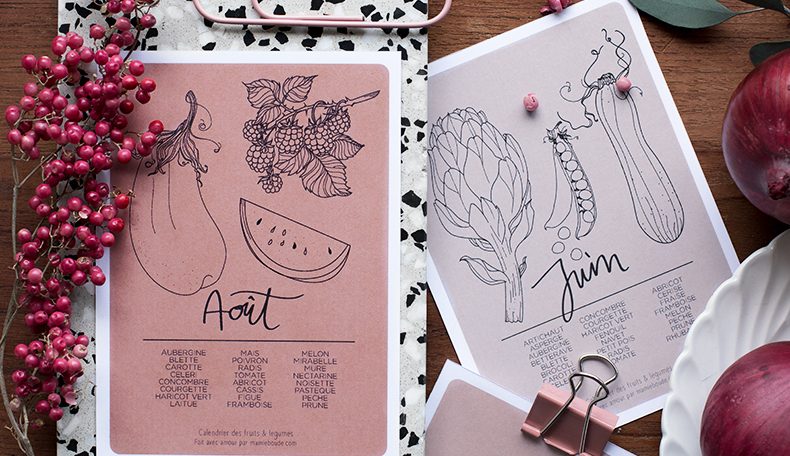 Août
AUBERGINE
BLETTE
CAROTTE
CELERI
CONCOMBRE
COURGETTE
HARICOT VERT
LAITUE
MAIS
POIVRON
RADIS
TOMATE
ABRICOT
CASSIS
FIGUE
FRAMBOISE
MELON
MIRABELLE
MURE
NECTARINE
NOISETTE
PASTEQUE
PECHE
PRUNE
Calendrier des fruits & légumes
Fait avec amour par mamieboude.com
Juin
ARTICHAUT
ASPERGE
AUBERGINE
BETTERAVE
BLE
BROCOL
CAROT
CONCOMBRE
COURGETTE
HARICOT VERT
FENOUIL
NAVET
PETIT POIS
RADIS
TOMATE
ABRICOT
CERISE
FRAISE
FRAMBOISE
MELON
PECHE
PRUNE
RHUB
Calendrier des fruits & légumes
avec amour par mamieboude.com